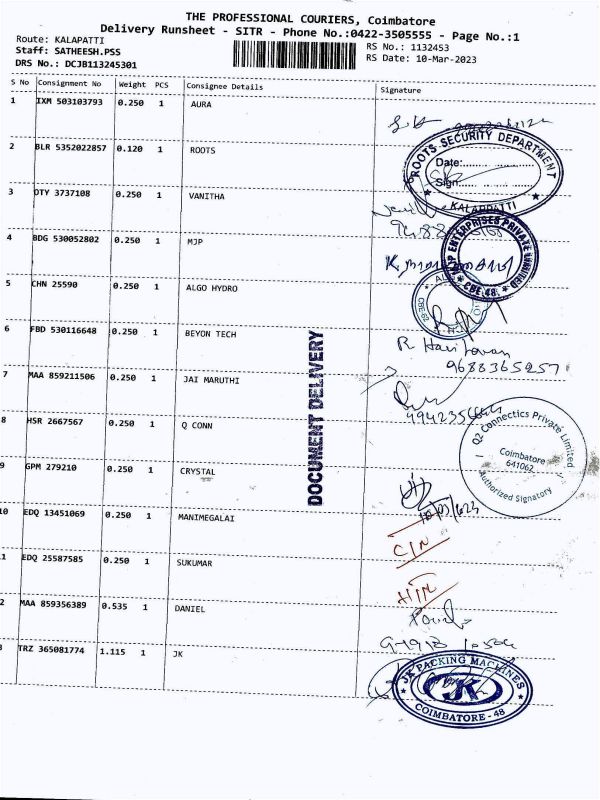 THE PROFESSIONAL COURIERS, Coimbatore
Delivery Runsheet - SITR - Phone No.:0422-3505555 - Page No.:1
Route: KALAPATTI
Staff: SATHEESH.PSS
DRS No.: DCJB113245301
RS No.: 1132453
RS Date: 10-Mar-2023
S No Consignment No Weight PCS Consignee Details Signature
1 IXM 503103793 0.250 1 AURA
2 BLR 5352022857 0.120 1 ROOTS
ROOTS SECURITY DEPARTMENT
Date:
Sign
KALAPPATTI
3 OTY 3737108 0.250 1 VANITHA
4 BDG 530052802 0.250 1 MJP
MJP ENTERPRISES PRIVATE LIMITED
CBE-48.
5 CHN 25590 0.250 1 ALGO HYDRO
6 FBD 530116648 0.250 1 BEYON TECH
R Hariharan
9688365257
7 MAA 859211506 0.250 1 JAI MARUTHI
DOCUMENT DELIVERY
8 HSR 2667567 0.250 1 Q CONN
Q2 Connectics Private Limited
Coimbatore
641062
Authorized Signatory
9 GPM 279210 0.250 1 CRYSTAL
10 EDQ 13451069 0.250 1 MANIMEGALAI
C/N
11 EDQ 25587585 0.250 1 SUKUMAR
2 MAA 859356389 0.535 1 DANIEL
3 TRZ 365081774 1.115 1 JK
JK PACKING MACHINES
JK
COIMBATORE - 48